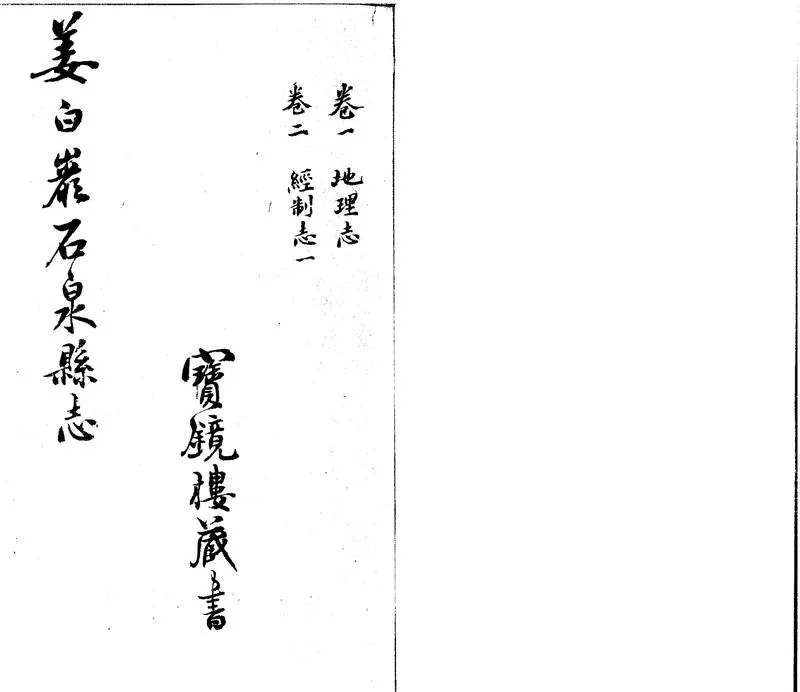 卷一 地理志
卷二 經制志一
寶鏡樓藏書
姜白巖石泉縣志